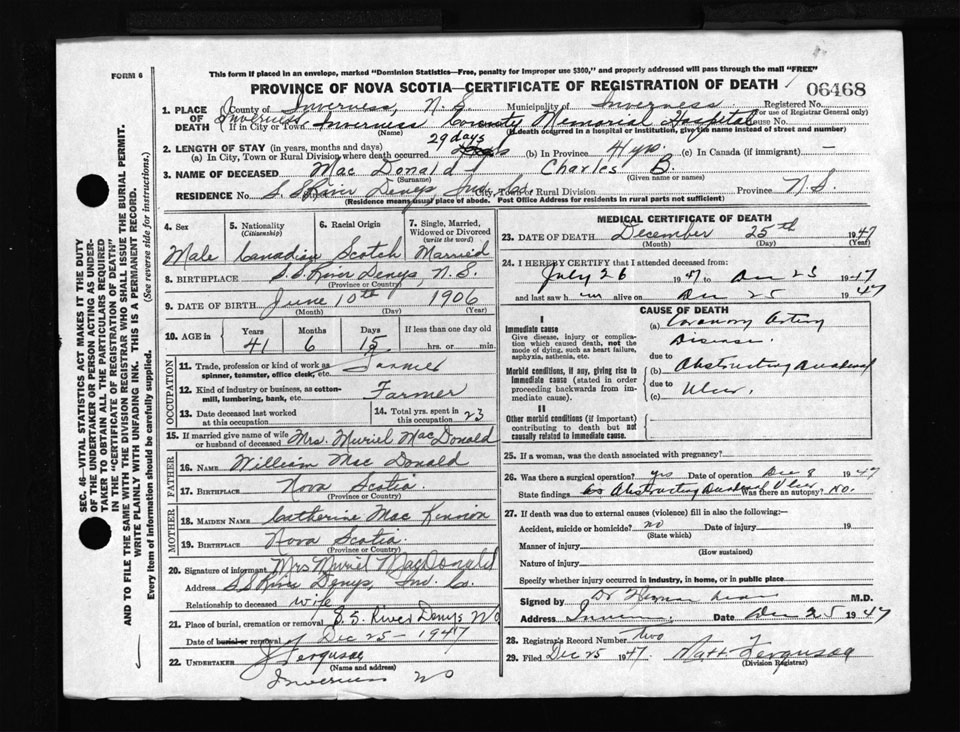 FORM 6
This form if placed in an envelope, marked "Dominion Statistics—Free, penalty for improper use $300," and properly addressed will pass through the mail "FREE"
PROVINCE OF NOVA SCOTIA—CERTIFICATE OF REGISTRATION OF DEATH
06468
SEC. 46—VITAL STATISTICS ACT MAKES IT THE DUTY
OF THE UNDERTAKER OR PERSON ACTING AS UNDER-
TAKER TO OBTAIN ALL THE PARTICULARS REQUIRED
IN THE "CERTIFICATE OF REGISTRATION OF DEATH"
AND TO FILE THE SAME WITH THE DIVISION REGISTRAR WHO SHALL ISSUE THE BURIAL PERMIT.
WRITE PLAINLY WITH UNFADING INK. THIS IS A PERMANENT RECORD.
Every item of information should be carefully supplied. (See reverse side for instructions.)
1. PLACE OF DEATH County of Inverness, N.S. Municipality of Inverness Registered No.
(For use of Registrar General only)
Inverness If in City or Town Inverness County Memorial Hospital House No.
(Name) (If death occurred in a hospital or institution, give the name instead of street and number)
2. LENGTH OF STAY (in years, months and days) 29 days
(a) In City, Town or Rural Division where death occurred (b) In Province 41 yrs. (c) In Canada (if immigrant) —
3. NAME OF DECEASED Mac Donald Charles B.
(Surname) (Given name or names)
RESIDENCE No. S. S. River Denys Inv. Co. City, Town or Rural Division Province N.S.
(Residence means usual place of abode. Post Office Address for residents in rural parts not sufficient)
4. Sex 5. Nationality (Citizenship) 6. Racial Origin 7. Single, Married, Widowed or Divorced (write the word)
Male Canadian Scotch Married
8. BIRTHPLACE S.S. River Denys, N.S.
(Province or Country)
9. DATE OF BIRTH June 10th 1906
(Month) (Day) (Year)
10. AGE in Years Months Days If less than one day old
41 6 15 hrs. or min.
OCCUPATION
11. Trade, profession or kind of work as spinner, teamster, office clerk, etc. Farmer
12. Kind of industry or business, as cotton-mill, lumbering, bank, etc. Farmer
13. Date deceased last worked at this occupation 14. Total yrs. spent in this occupation 23
15. If married give name of wife or husband of deceased Mrs. Muriel MacDonald
FATHER
16. NAME William Mac Donald
17. BIRTHPLACE Nova Scotia.
(Province or Country)
MOTHER
18. MAIDEN NAME Catherine Mac Kinnon
19. BIRTHPLACE Nova Scotia.
(Province or Country)
20. Signature of informant Mrs Muriel MacDonald
Address S.S River Denys, Inv. Co.
Relationship to deceased wife
21. Place of burial, cremation or removal S. S. River Denys NS
Date of burial or removal Dec 25 - 1947
22. UNDERTAKER J Ferguson
(Name and address)
Inverness NS
MEDICAL CERTIFICATE OF DEATH
23. DATE OF DEATH December 25th 1947
(Month) (Day) (Year)
24. I HEREBY CERTIFY that I attended deceased from:
July 26 1947 to Dec 23 1947
and last saw him alive on Dec 25 1947
CAUSE OF DEATH
I
Immediate cause
Give disease, injury or complica-
tion which caused death, not the
mode of dying, such as heart failure,
asphyxia, asthenia, etc.
(a) Coronary Artery
Disease.
due to
Morbid conditions, if any, giving rise to
immediate cause (stated in order
proceeding backwards from im-
mediate cause).
(b) Obstructing Duodenal
due to
(c) Ulcer.
II
Other morbid conditions (if important)
contributing to death but not
causally related to immediate cause.
25. If a woman, was the death associated with pregnancy?
26. Was there a surgical operation? yes Date of operation Dec 8 1947
State findings Obstructing Duodenal Ulcer Was there an autopsy? No.
27. If death was due to external causes (violence) fill in also the following:—
Accident, suicide or homicide? no Date of injury 19
(State which)
Manner of injury
(How sustained)
Nature of injury
Specify whether injury occurred in industry, in home, or in public place
Signed by Dr M.D.
Address Date Dec 25 1947
28. Registrar's Record Number two
29. Filed Dec 25 1947 Matt. Ferguson
(Division Registrar)